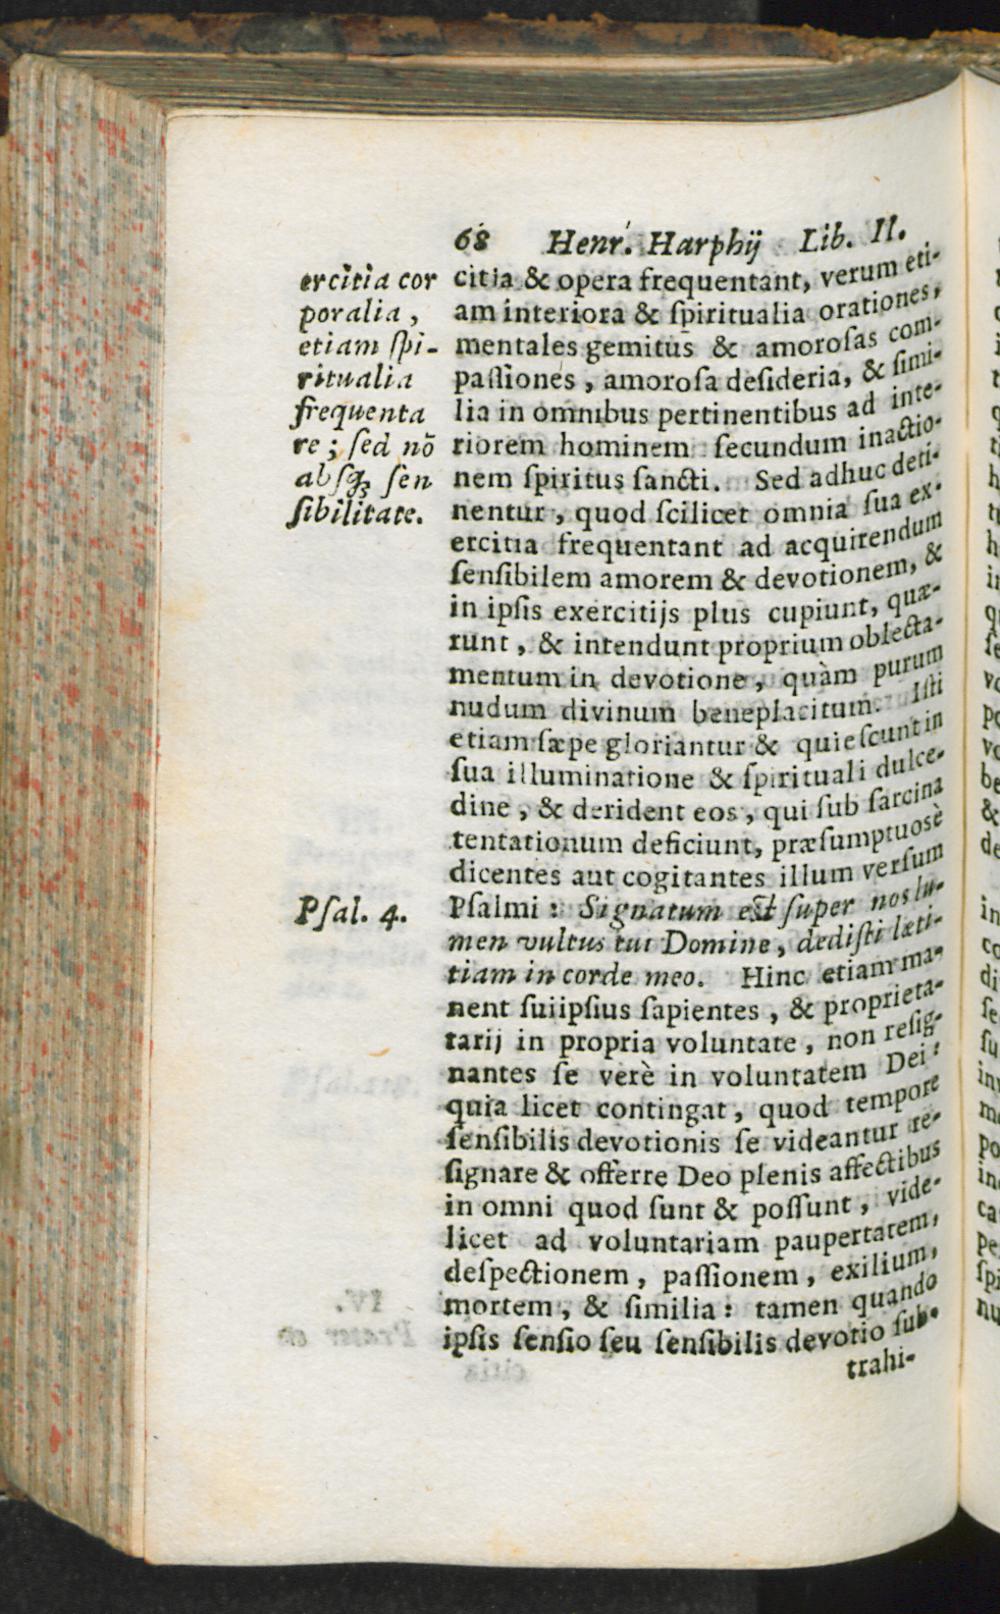 68 Henr. Harphij Lib. II.
ercitia cor
poralia,
etiam ſpi-
ritualia
frequenta
re; ſed nõ
abſq; ſen
ſibilitate.
citia & opera frequentant, verum eti-
am interiora & ſpiritualia orationes,
mentales gemitus & amoroſas com-
paſſiones, amoroſa deſideria, & ſimi-
lia in omnibus pertinentibus ad inte-
riorem hominem ſecundum inactio-
nem ſpiritus ſancti. Sed adhuc deti-
nentur, quod ſcilicet omnia ſua ex-
ercitia frequentant ad acquirendum
ſenſibilem amorem & devotionem, &
in ipſis exercitijs plus cupiunt, quæ-
runt, & intendunt proprium oblecta-
mentum in devotione, quàm purum
nudum divinum beneplacitum. Iſti
etiam ſæpe gloriantur & quieſcunt in
ſua illuminatione & ſpirituali dulce-
dine, & derident eos, qui ſub ſarcina
tentationum deficiunt, præſumptuosè
dicentes aut cogitantes illum verſum
Pſal. 4.
Pſalmi: Signatum eſt ſuper nos lu-
men vultus tui Domine, dediſti læti-
tiam in corde meo. Hinc etiam ma-
nent ſuiipſius ſapientes, & proprieta-
tarij in propria voluntate, non reſig-
nantes ſe verè in voluntatem Dei:
quia licet contingat, quod tempore
ſenſibilis devotionis ſe videantur re-
ſignare & offerre Deo plenis affectibus
in omni quod ſunt & poſſunt, vide-
licet ad voluntariam paupertatem,
deſpectionem, paſſionem, exilium,
mortem, & ſimilia: tamen quando
ipſis ſenſio ſeu ſenſibilis devotio ſub-
trahi-